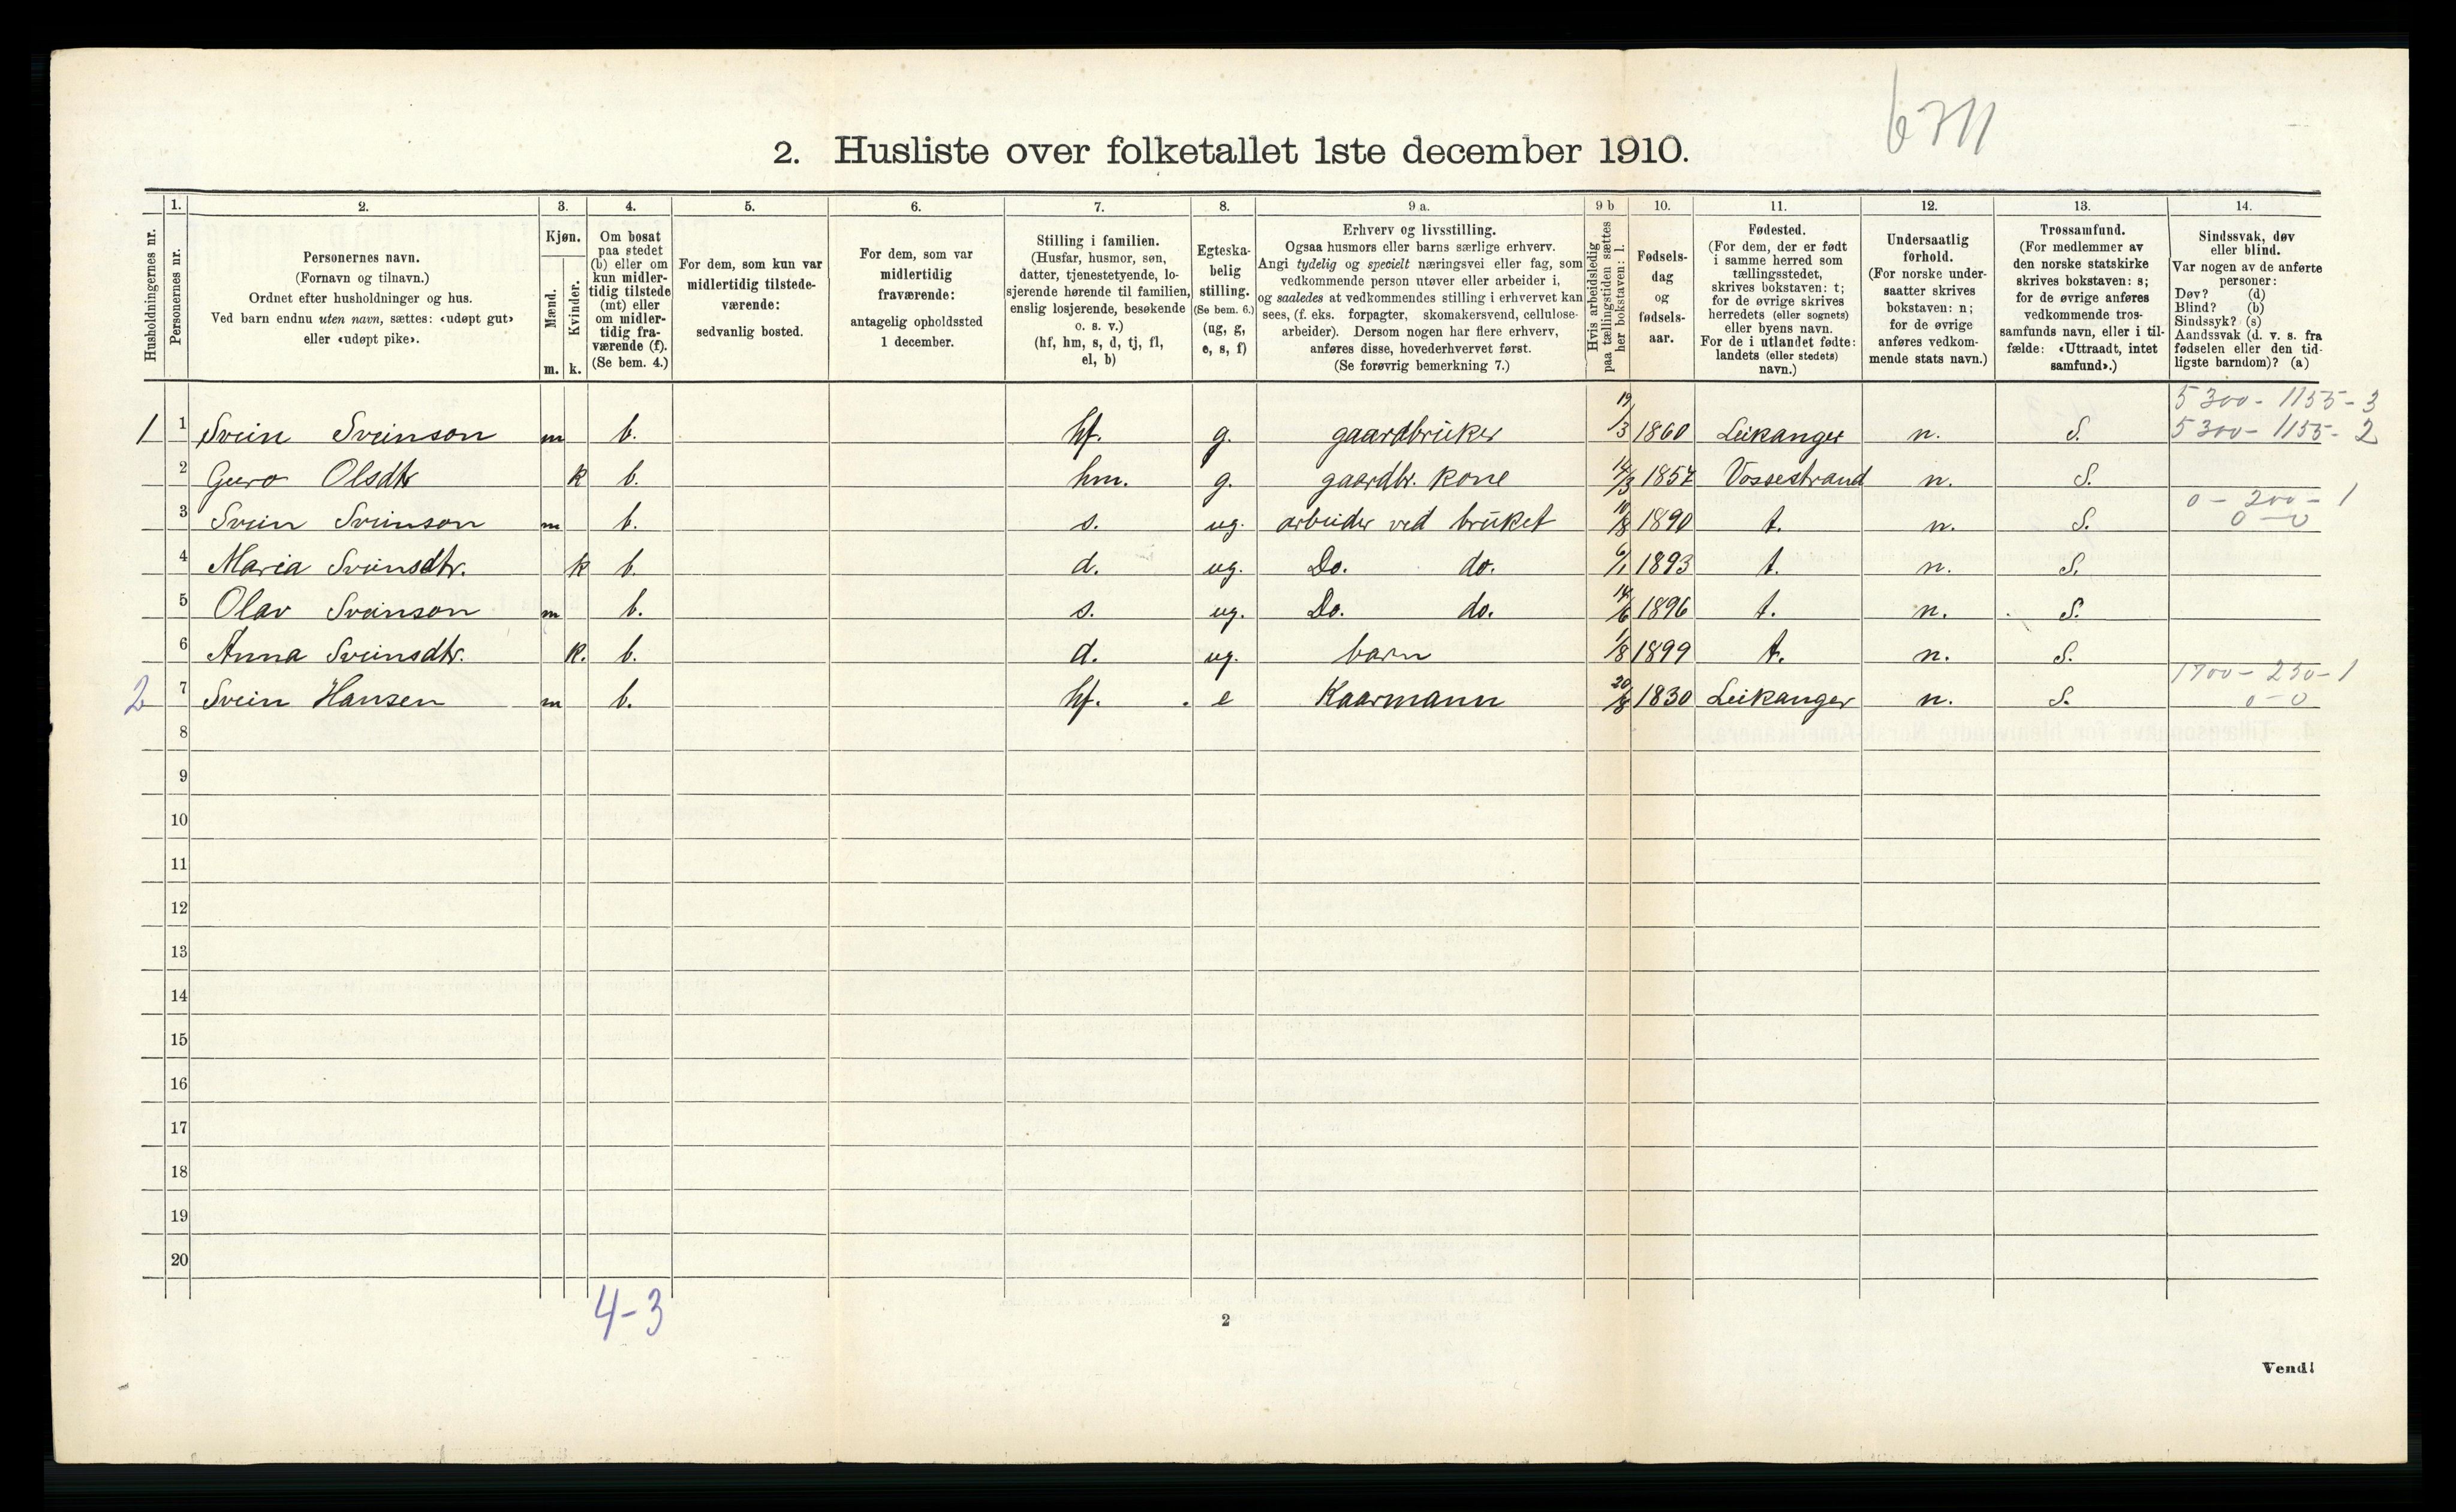 6711
2. Husliste over folketallet 1ste december 1910.
Husholdningernes nr.
1. Personernes nr.
2. Personernes navn.
(Fornavn og tilnavn.)
Ordnet efter husholdninger og hus.
Ved barn endnu uten navn, sættes: «udøpt gut»
eller «udøpt pike».
3. Kjøn.
Mænd. m.
Kvinder. k.
4. Om bosat
paa stedet
(b) eller om
kun midler-
tidig tilstede
(mt) eller
om midler-
tidig fra-
værende (f).
(Se bem. 4.)
5. For dem, som kun var
midlertidig tilstede-
værende:
sedvanlig bosted.
6. For dem, som var
midlertidig
fraværende:
antagelig opholdssted
1 december.
7. Stilling i familien.
(Husfar, husmor, søn,
datter, tjenestetyende, lo-
sjerende hørende til familien,
enslig losjerende, besøkende
o. s. v.)
(hf, hm, s, d, tj, fl,
el, b)
8. Egteska-
belig
stilling.
(Se bem. 6.)
(ug, g,
e, s, f)
9 a. Erhverv og livsstilling.
Ogsaa husmors eller barns særlige erhverv.
Angi tydelig og specielt næringsvei eller fag, som
vedkommende person utøver eller arbeider i,
og saaledes at vedkommendes stilling i erhvervet kan
sees, (f. eks. forpagter, skomakersvend, cellulose-
arbeider). Dersom nogen har flere erhverv,
anføres disse, hovederhvervet først.
(Se forøvrig bemerkning 7.)
9 b. Hvis arbeidsledig
paa tællingstiden sættes
her bokstaven: l.
10. Fødsels-
dag
og
fødsels-
aar.
11. Fødested.
(For dem, der er født
i samme herred som
tællingsstedet,
skrives bokstaven: t;
for de øvrige skrives
herredets (eller sognets)
eller byens navn.
For de i utlandet fødte:
landets (eller stedets)
navn.)
12. Undersaatlig
forhold.
(For norske under-
saatter skrives
bokstaven: n;
for de øvrige
anføres vedkom-
mende stats navn.)
13. Trossamfund.
(For medlemmer av
den norske statskirke
skrives bokstaven: s;
for de øvrige anføres
vedkommende tros-
samfunds navn, eller i til-
fælde: «Uttraadt, intet
samfund».)
14. Sindssvak, døv
eller blind.
Var nogen av de anførte
personer:
Døv? (d)
Blind? (b)
Sindssyk? (s)
Aandssvak (d. v. s. fra
fødselen eller den tid-
ligste barndom)? (a)
5300 - 1155 - 3
1 1 Svein Sveinson m b. hf. g. gaardbruker 19/3 1860 Leikanger n. S. 5300 - 1155 - 2
2 Guro Olsdtr k b. hm. g. gaardbr. kone 14/3 1857 Vossestrand n. S.
0 - 200 - 1
3 Svein Sveinson m b. s. ug. arbeider ved bruket 10/8 1890 t. n. S. 0 - 0
4 Maria Sveinsdtr. k b. d. ug. Do. do. 6/1 1893 t. n. S.
5 Olav Sveinson m b. s. ug. Do. do. 14/6 1896 t. n. S.
6 Anna Sveinsdtr. k. b. d. ug. barn 1/8 1899 t. n. S.
1700 - 230 - 1
2 7 Svein Hansen m b. hf. e Kaarmann 20/8 1830 Leikanger n. S. 0 - 0
8
9
10
11
12
13
14
15
16
17
18
19
20
4-3
2
Vend!